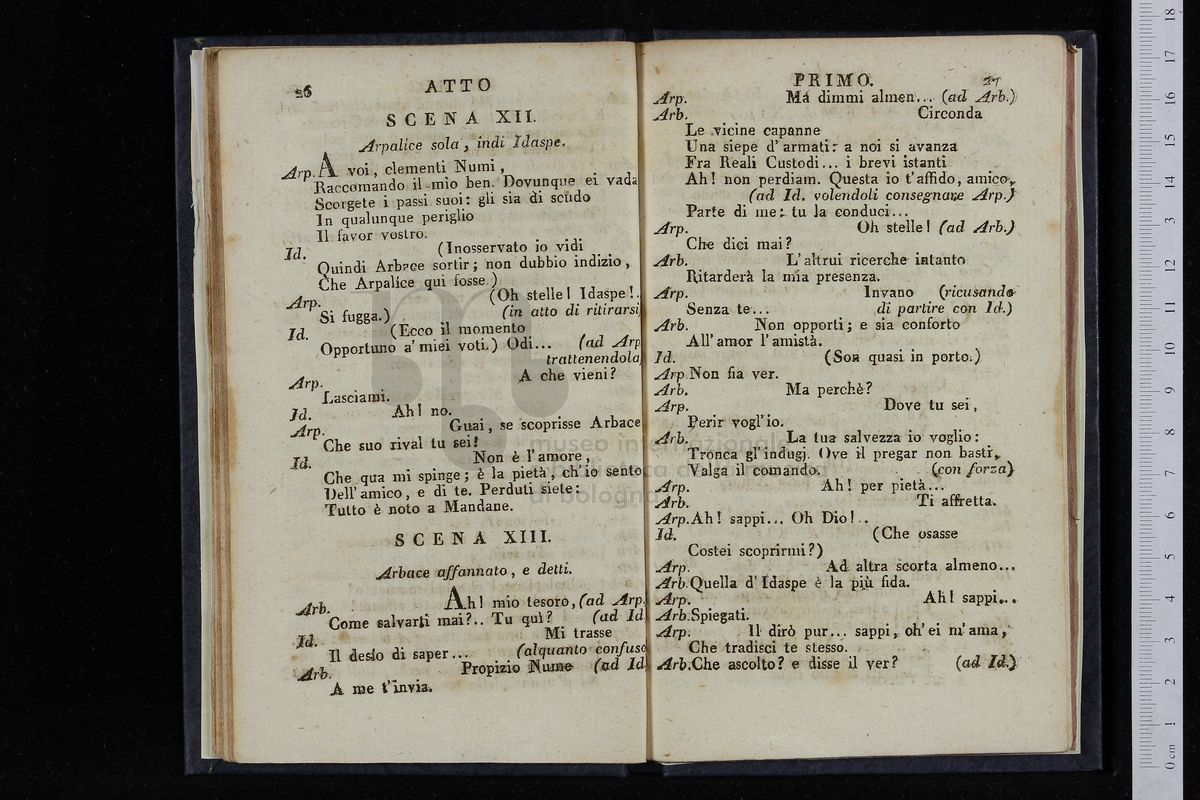 26
ATTO
SCENA XII.
Arpalice sola, indi Idaspe.
Arp. A voi, clementi Numi,
Raccomando il mio ben. Dovunque ei vada
Scorgete i passi suoi: gli sia di scudo
In qualunque periglio
Il favor vostro.
Id. (Inosservato io vidi
Quindi Arbace sortir; non dubbio indizio,
Che Arpalice qui fosse.)
Arp. (Oh stelle! Idaspe!.
Si fugga.) (in atto di ritirarsi
Id. (Ecco il momento
Opportuno a' miei voti.) Odi... (ad Arp
trattenendola
Arp. A che vieni?
Lasciami.
Id. Ah! no.
Arp. Guai, se scoprisse Arbace
Che suo rival tu sei!
Id. Non è l'amore,
Che qua mi spinge; è la pietà, ch'io sento
Dell' amico, e di te. Perduti siete:
Tutto è noto a Mandane.
SCENA XIII.
Arbace affannato, e detti.
Arb. Ah! mio tesoro, (ad Arp.
Come salvarti mai?.. Tu quì? (ad Id
Id. Mi trasse
Il desìo di saper... (alquanto confuso
Arb. Propizio Nume (ad Id
A me t'invia.
PRIMO. 27
Arp. Má dimmi almen... (ad Arb.)
Arb. Circonda
Le vicine capanne
Una siepe d'armati: a noi si avanza
Fra Reali Custodi... i brevi istanti
Ah! non perdiam. Questa io t'affido, amico,
(ad Id. volendoli consegnare Arp.)
Parte di me: tu la conduci...
Arp. Oh stelle! (ad Arb.)
Che dici mai?
Arb. L'altrui ricerche intanto
Ritarderà la mia presenza.
Arp. Invano (ricusando
Senza te... di partire con Id.)
Arb. Non opporti; e sia conforto
All' amor l'amistà.
Id. (Son quasi in porto.)
Arp. Non fia ver.
Arb. Ma perchè?
Arp. Dove tu sei,
Perir vogl'io.
Arb. La tua salvezza io voglio:
Tronca gl'indugj. Ove il pregar non basti,
Valga il comando. (con forza)
Arp. Ah! per pietà...
Arb. Ti affretta.
Arp. Ah! sappi... Oh Dio!..
Id. (Che osasse
Costei scoprirmi?)
Arp. Ad altra scorta almeno...
Arb. Quella d'Idaspe è la più fida.
Arp. Ah! sappi...
Arb. Spiegati.
Arp. Il dirò pur... sappi, ch'ei m'ama,
Che tradisci te stesso.
Arb. Che ascolto? e disse il ver? (ad Id.)
museo internazionale
di bologna
0 cm 1 2 3 4 5 6 7 8 9 10 11 12 13 14 15 16 17 18